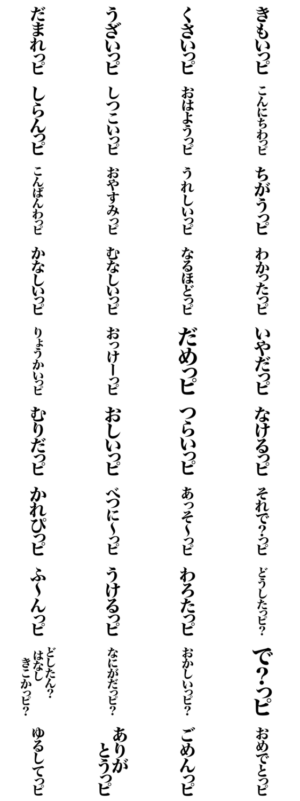 だまれっピ
うざいっピ
くさいっピ
きもいっピ
しらんっピ
しつこいっピ
おはようっピ
こんにちわっピ
こんばんわっピ
おやすみっピ
うれしいっピ
ちがうっピ
かなしいっピ
むなしいっピ
なるほどっピ
わかったっピ
りょうかいっピ
おっけーっピ
だめっピ
いやだっピ
むりだっピ
おしいっピ
つらいっピ
なけるっピ
かれぴっピ
べつに〜っピ
あっそ〜っピ
それで？っピ
ふ〜んっピ
うけるっピ
わろたっピ
どうしたっピ？
どしたん？
はなし
きこかっピ？
なにがだっピ？
おかしいっピ？
で？っピ
ゆるしてっピ
ありが
とうっピ
ごめんっピ
おめでとっピ